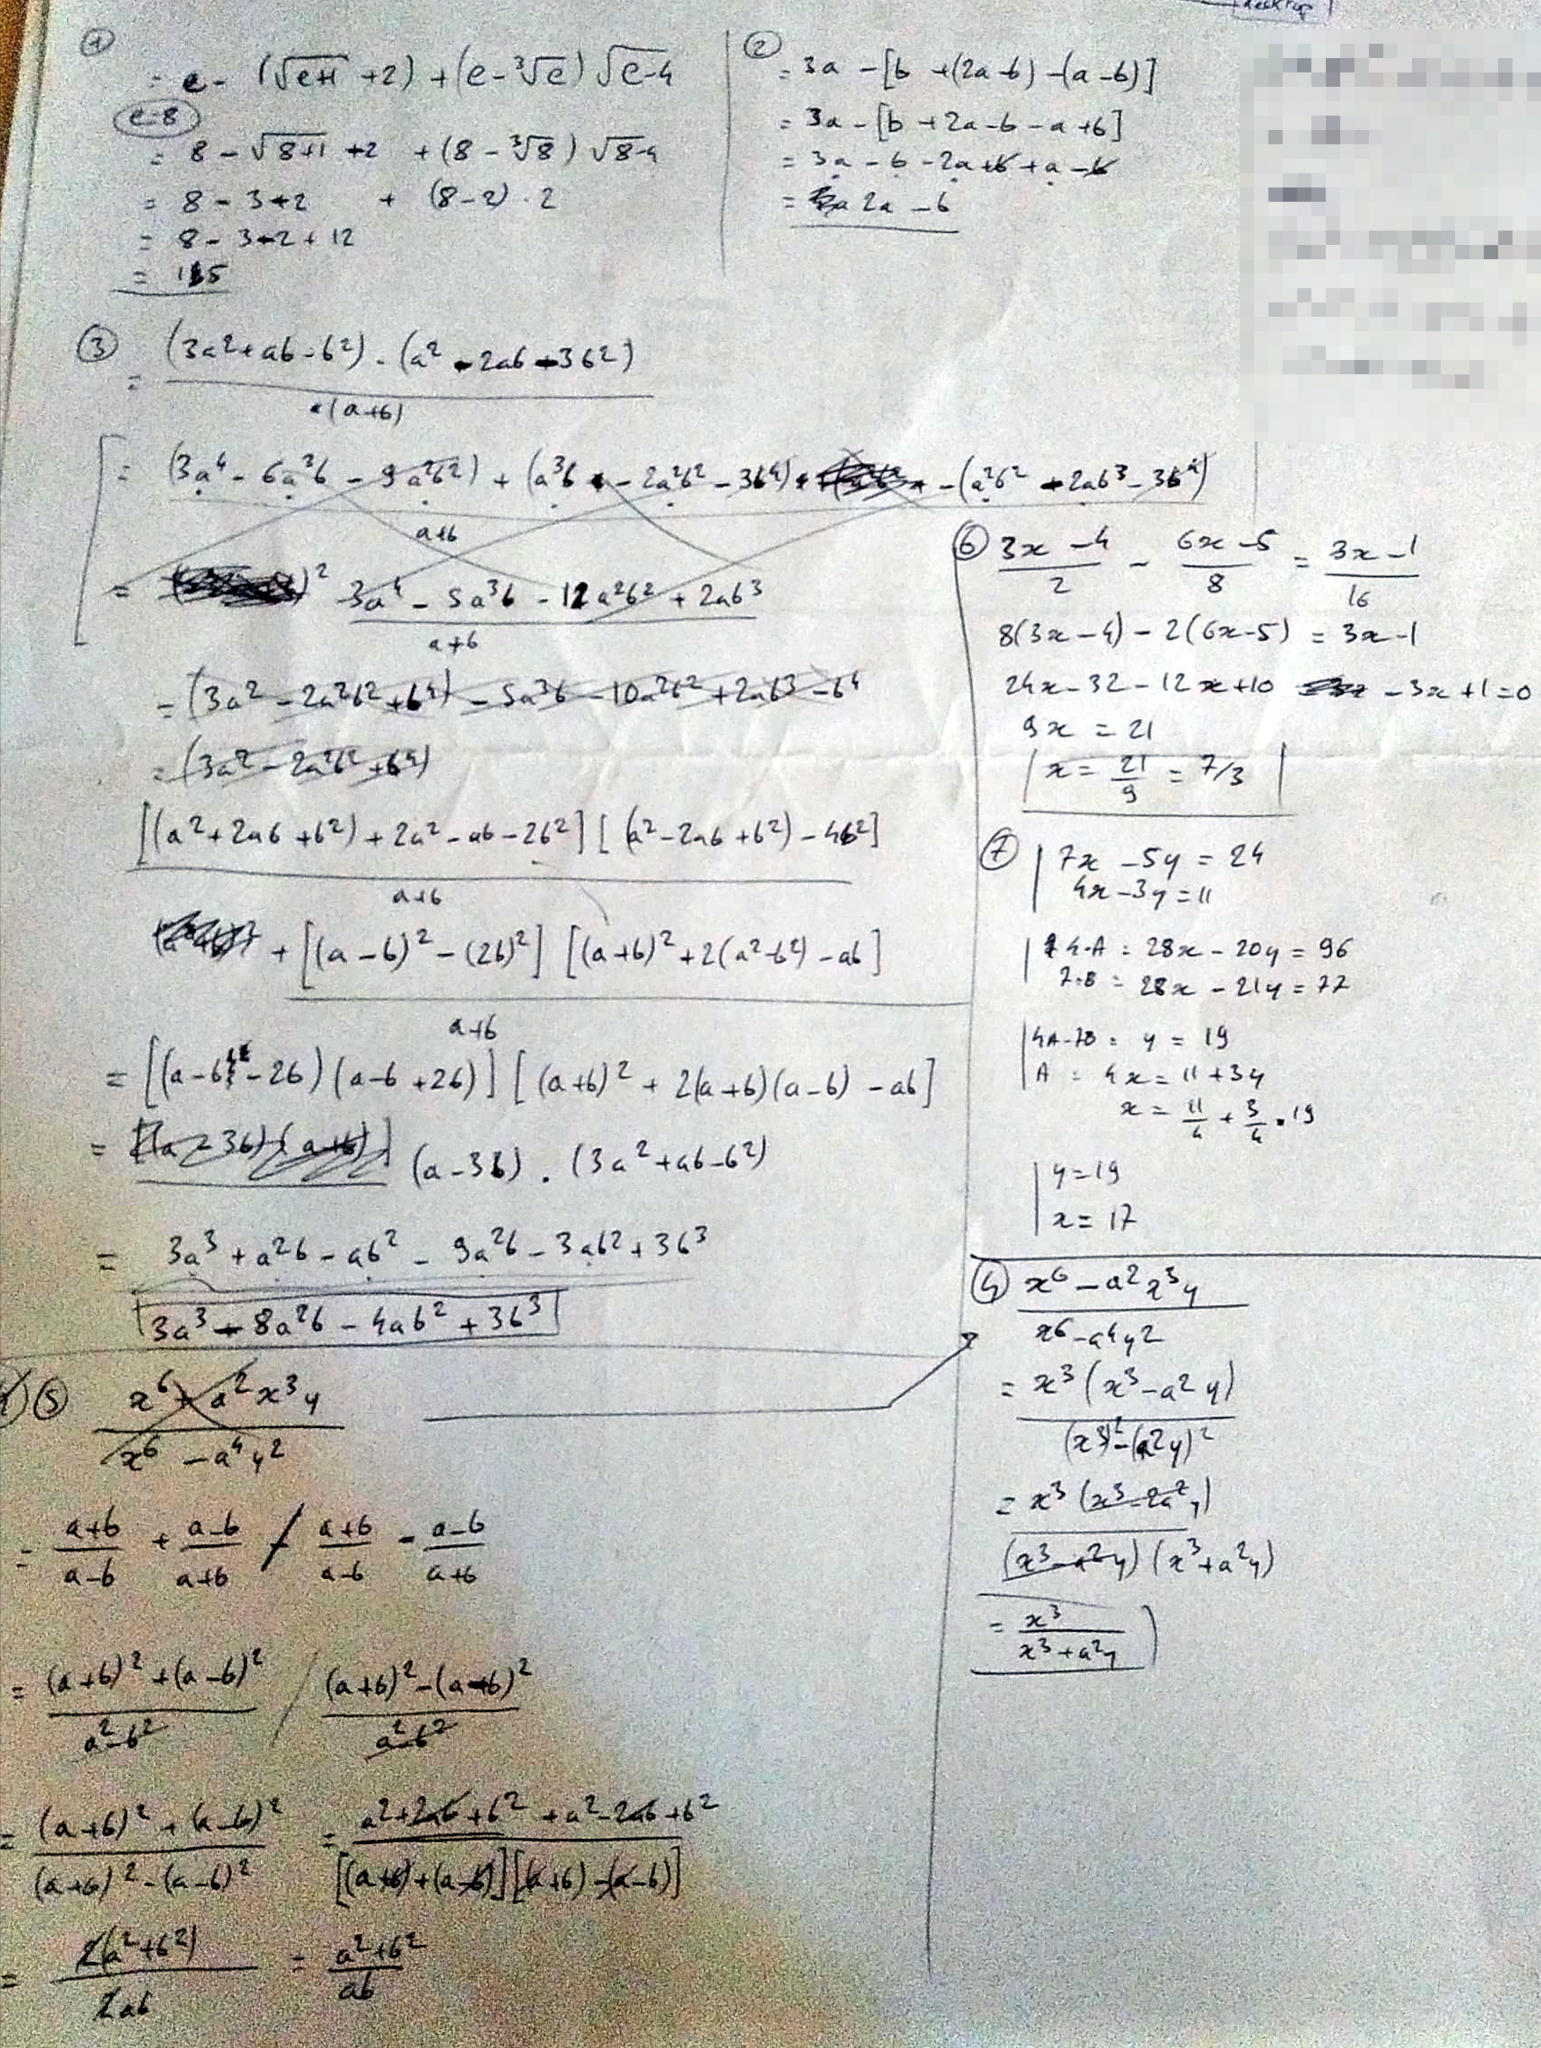 desktop
①
= e - (√e+1 +2) + (e - ³√e) √e-4
e=8
= 8 - √8+1 +2 + (8 - ³√8) √8-4
= 8 - 3+2 + (8-2) · 2
= 8 - 3-2+12
= 15
②
= 3a - [b + (2a-b) - (a-b)]
= 3a - [b + 2a - b - a + b]
= 3a - b - 2a + b + a - b
= 2a - b
③
= (3a² + ab - b²) · (a² - 2ab - 3b²)
(a+b)
= (3a⁴ - 6a³b - 9a²b²) + (a³b - 2a²b² - 3b⁴) - (a²b² - 2ab³ - 3b⁴)
a+b
= 3a⁴ - 5a³b - 12a²b² + 2ab³
a+b
= (3a² - 2a²b² + b⁴) - 5a³b - 10a²b² + 2ab³ - b⁴
= (3a² - 2a²b² + b⁴)
[(a² + 2ab + b²) + 2a² - ab - 2b²] [(a² - 2ab + b²) - 4b²]
a+b
+ [(a-b)² - (2b)²] [(a+b)² + 2(a²-b²) - ab]
a+b
= [(a-b - 2b) (a-b + 2b)] [(a+b)² + 2(a+b)(a-b) - ab]
= [(a-3b)(a+b)] (a-3b) · (3a² + ab - b²)
= 3a³ + a²b - ab² - 9a²b - 3ab² + 3b³
3a³ - 8a²b - 4ab² + 3b³
⑤
x⁶ - a²x³y
x⁶ - a⁴y²
= a+b/a-b + a-b/a+b / a+b/a-b - a-b/a+b
= (a+b)² + (a-b)² / (a+b)² - (a-b)²
a²-b² a²-b²
= (a+b)² + (a-b)² = a² + 2ab + b² + a² - 2ab + b²
(a+b)² - (a-b)² [(a+b) + (a-b)] [(a+b) - (a-b)]
= 2(a² + b²) = a² + b²
2ab ab
⑥ 3x-4/2 - 6x-5/8 = 3x-1/16
8(3x-4) - 2(6x-5) = 3x-1
24x - 32 - 12x + 10 - 3x + 1 = 0
9x = 21
x = 21/9 = 7/3
⑦ 7x - 5y = 24
4x - 3y = 11
4·A = 28x - 20y = 96
7·B = 28x - 21y = 77
4A-7B = y = 19
A = 4x = 11 + 3y
x = 11/4 + 3/4 · 19
y = 19
x = 17
④ x⁶ - a²x³y
x⁶ - a⁴y²
= x³ (x³ - a²y)
(x³)² - (a²y)²
= x³ (x³ - 2a²y)
(x³ - a²y) (x³ + a²y)
= x³
x³ + a²y